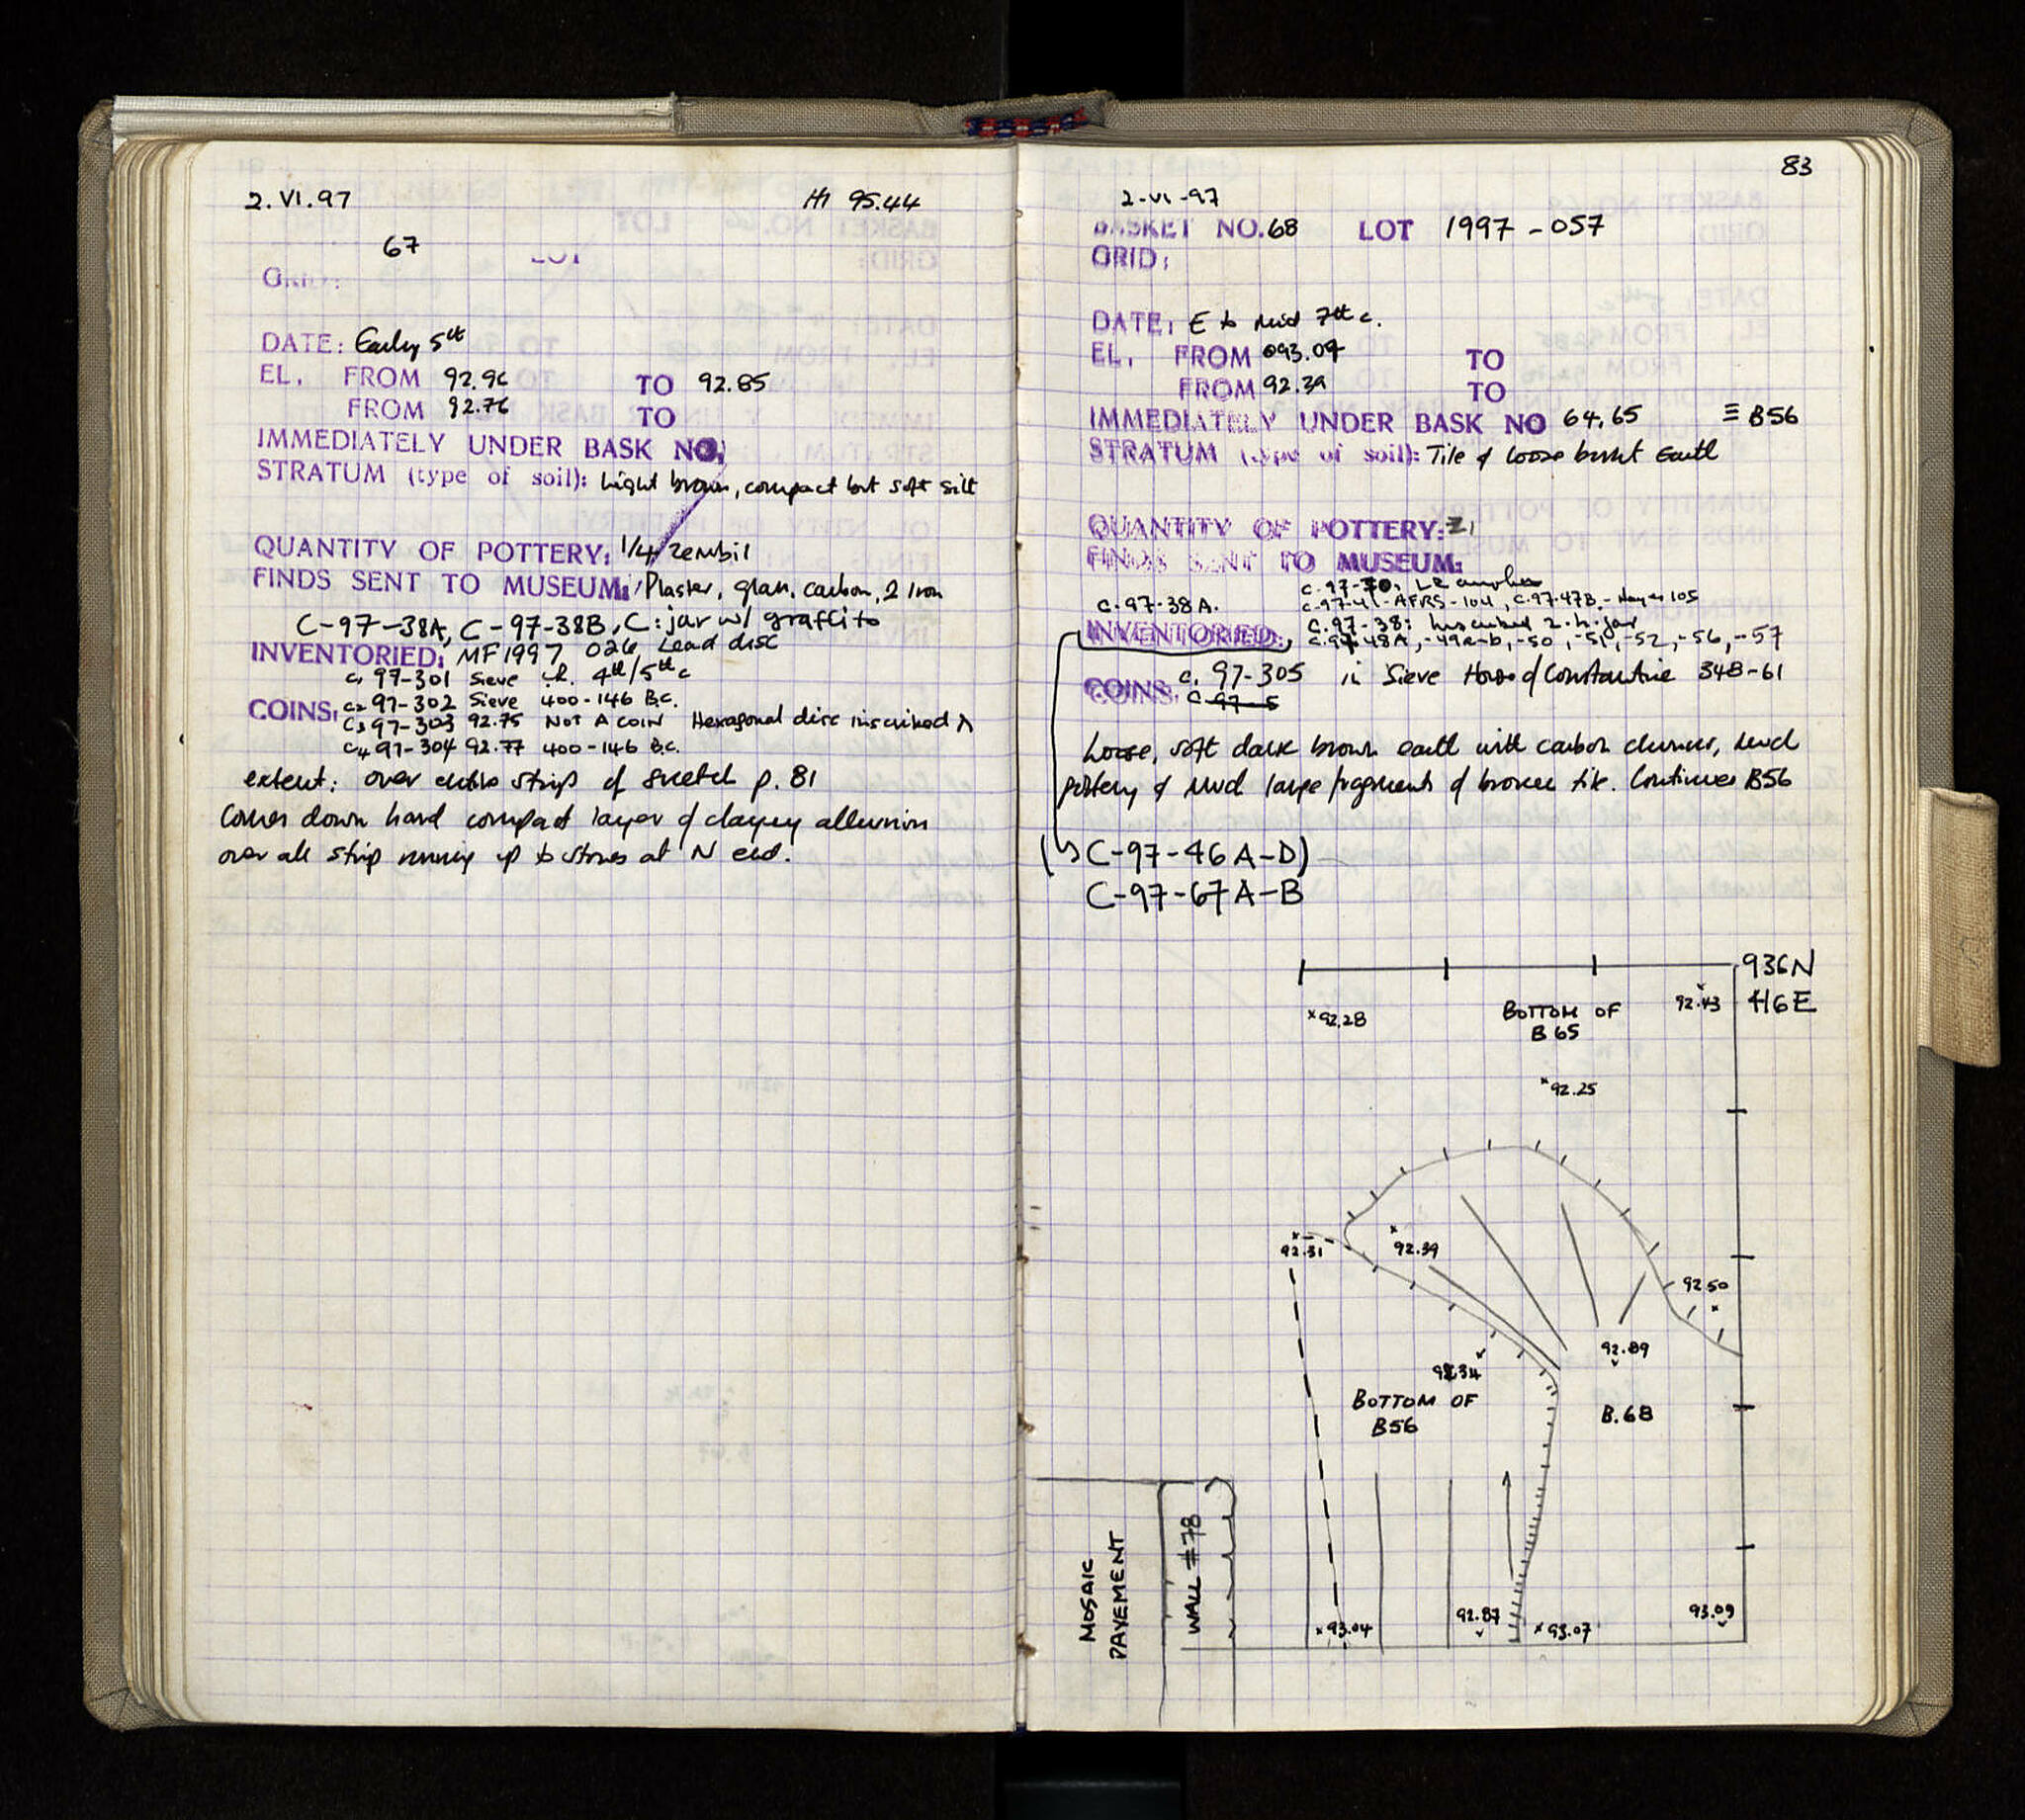 2.VI.97 HI 95.44
67
GRID:
DATE: Early 5th
EL. FROM 92.96 TO 92.85
FROM 92.76 TO
IMMEDIATELY UNDER BASK NO.
STRATUM (type of soil): Light brown, compact but soft silt
QUANTITY OF POTTERY: 1/4 zembil
FINDS SENT TO MUSEUM: Plaster, glass, carbon, 2 Iron
C-97-38A, C-97-38B, C: jar w/ graffito
INVENTORIED: MF1997 026 Lead disc
c1 97-301 Sieve 4th/5th c
COINS: c2 97-302 Sieve 400-146 B.C.
c3 97-303 92.75 NOT A COIN Hexagonal disc inscribed λ
c4 97-304 92.77 400-146 B.C.
extent: over entire strip of sketch p. 81
Comes down hard compact layer of clayey alluvium
over all strip running up to stones at N end.
83
2-VI-97
BASKET NO. 68 LOT 1997-057
GRID:
DATE: E to Mid 7th c.
EL. FROM 093.09 TO
FROM 92.39 TO
IMMEDIATELY UNDER BASK NO 64, 65 ≡ B56
STRATUM (type of soil): Tile & loose burnt Earth
QUANTITY OF POTTERY: Z1
FINDS SENT TO MUSEUM:
C-97-70, LR amphora
C-97-38A. C-97-41-AFRS-104, C-97-47B-Hayes 105
C-97-38: Inscribed 2-h-jar
INVENTORIED: C-97-48A, -49a-b, -50, -51, -52, -56, -57
COINS: c. 97-305 in Sieve House of Constantine 348-61
C-97-5
Loose, soft dark brown earth with carbon chunks, much
pottery & much large fragments of broken tile. Continues B56
(C-97-46A-D)
C-97-67A-B
936N
92.28 BOTTOM OF 92.43 416E
B65
92.25
92.31 92.39
92.50
92.89
92.34
BOTTOM OF B.68
B56
MOSAIC
PAVEMENT
WALL #78
93.04 92.87 93.07 93.09